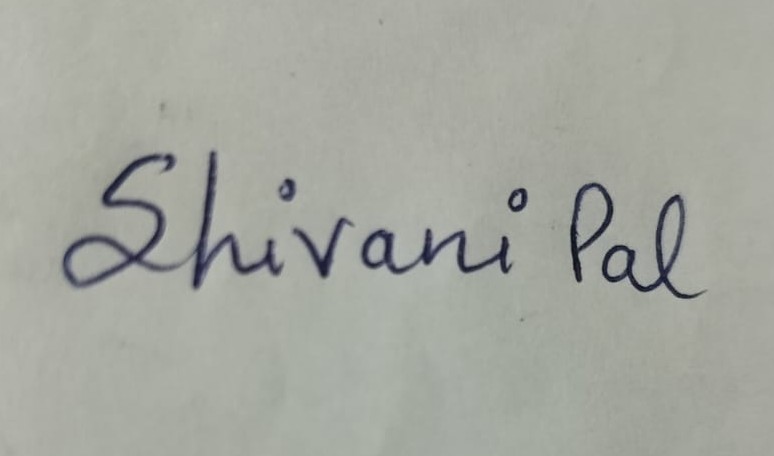 Shivani Pal